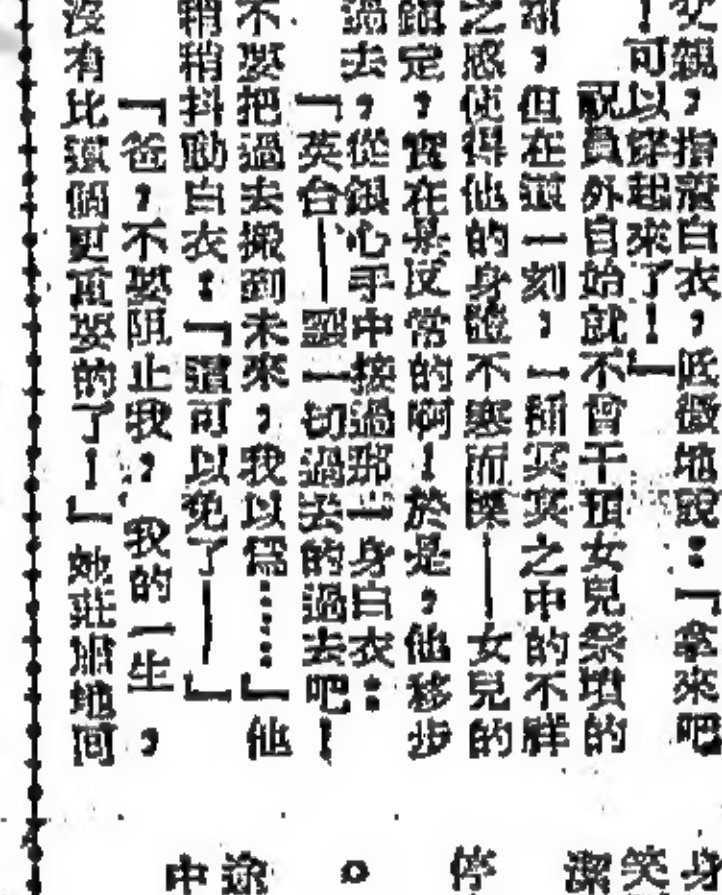 父親,指着白衣,低微地說:「拿來吧
!可以穿起來了!」
祝員外自始就不曾干預女兒祭墳的
,但在這一刻,一種冥冥之中的不祥
之感使得他的身體不寒而慄——女兒的
鎮定,實在是反常的啊!於是,他移步
過去,從銀心手中接過那一身白衣:
「英台——讓一切過去的過去吧!
不要把過去搬到未來,我以為……」他
稍稍抖動白衣:「這可以免了——」
「爸,不要阻止我,我的一生,
沒有比這個更重要的了!」她莊肅地向
身
笑
潔
停
。
途
中